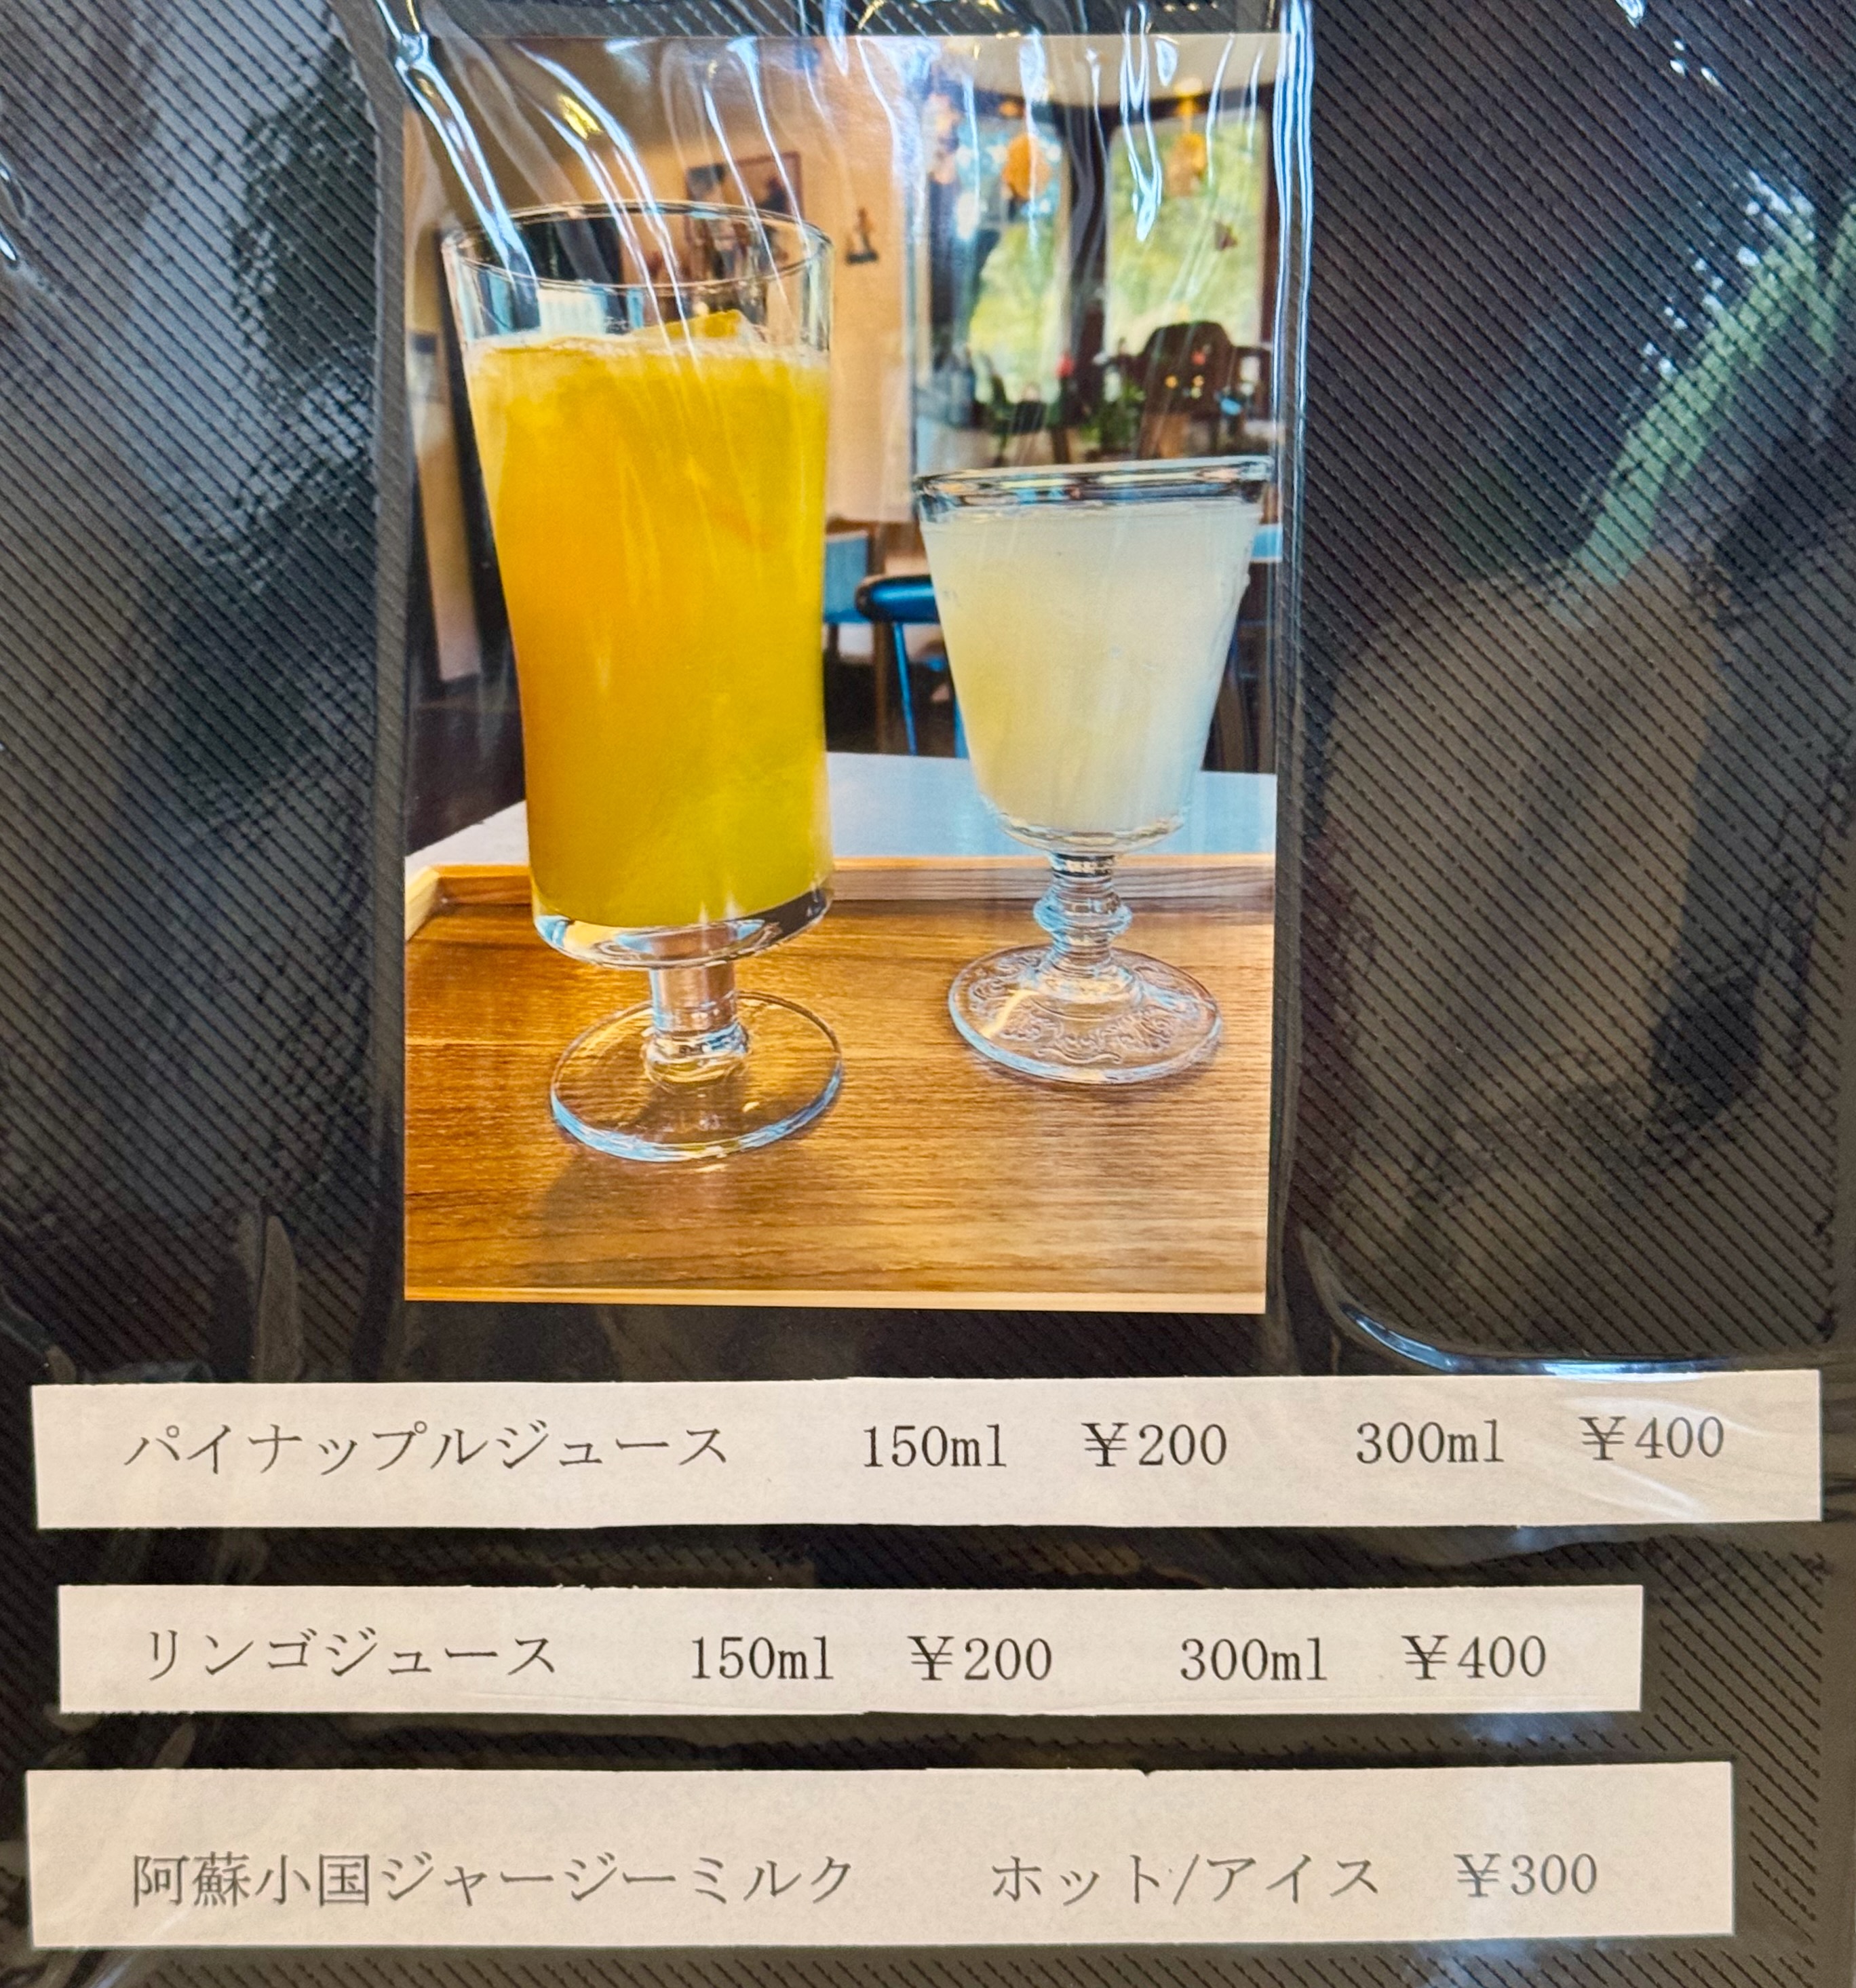 パイナップルジュース 150ml ¥200 300ml ¥400
リンゴジュース 150ml ¥200 300ml ¥400
阿蘇小国ジャージーミルク ホット/アイス ¥300